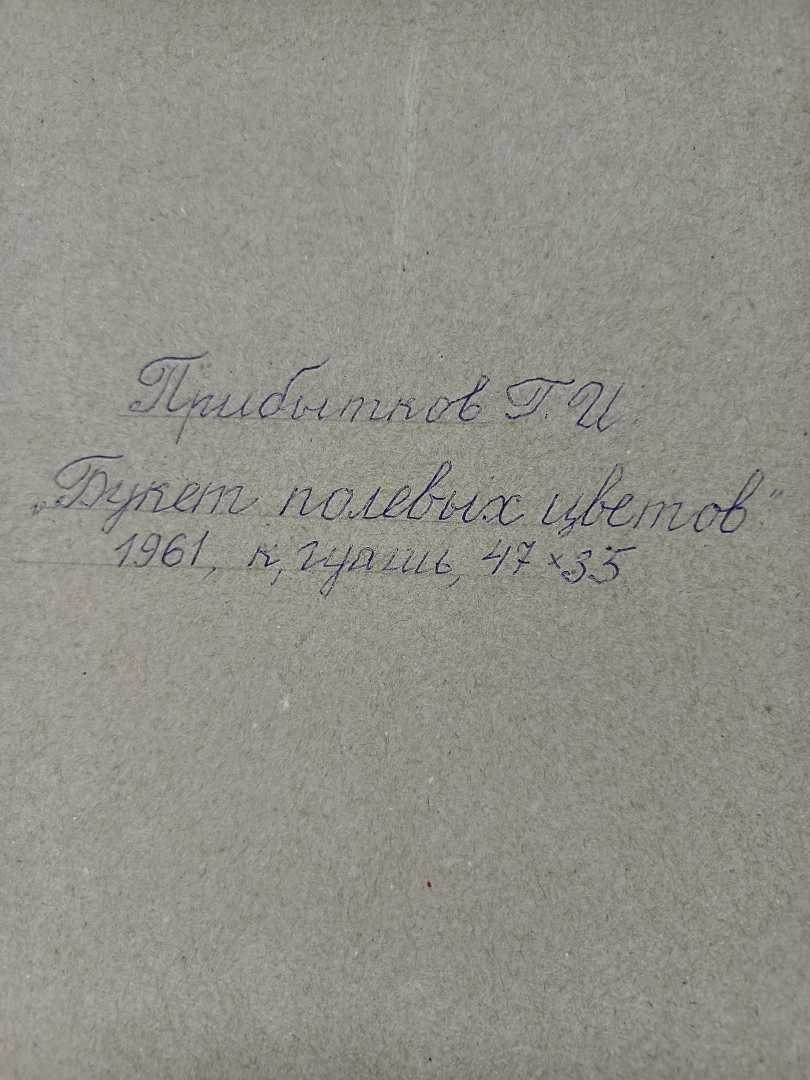 Прибытков Г. И.
„Букет полевых цветов"
1961, к, гуашь, 47×35